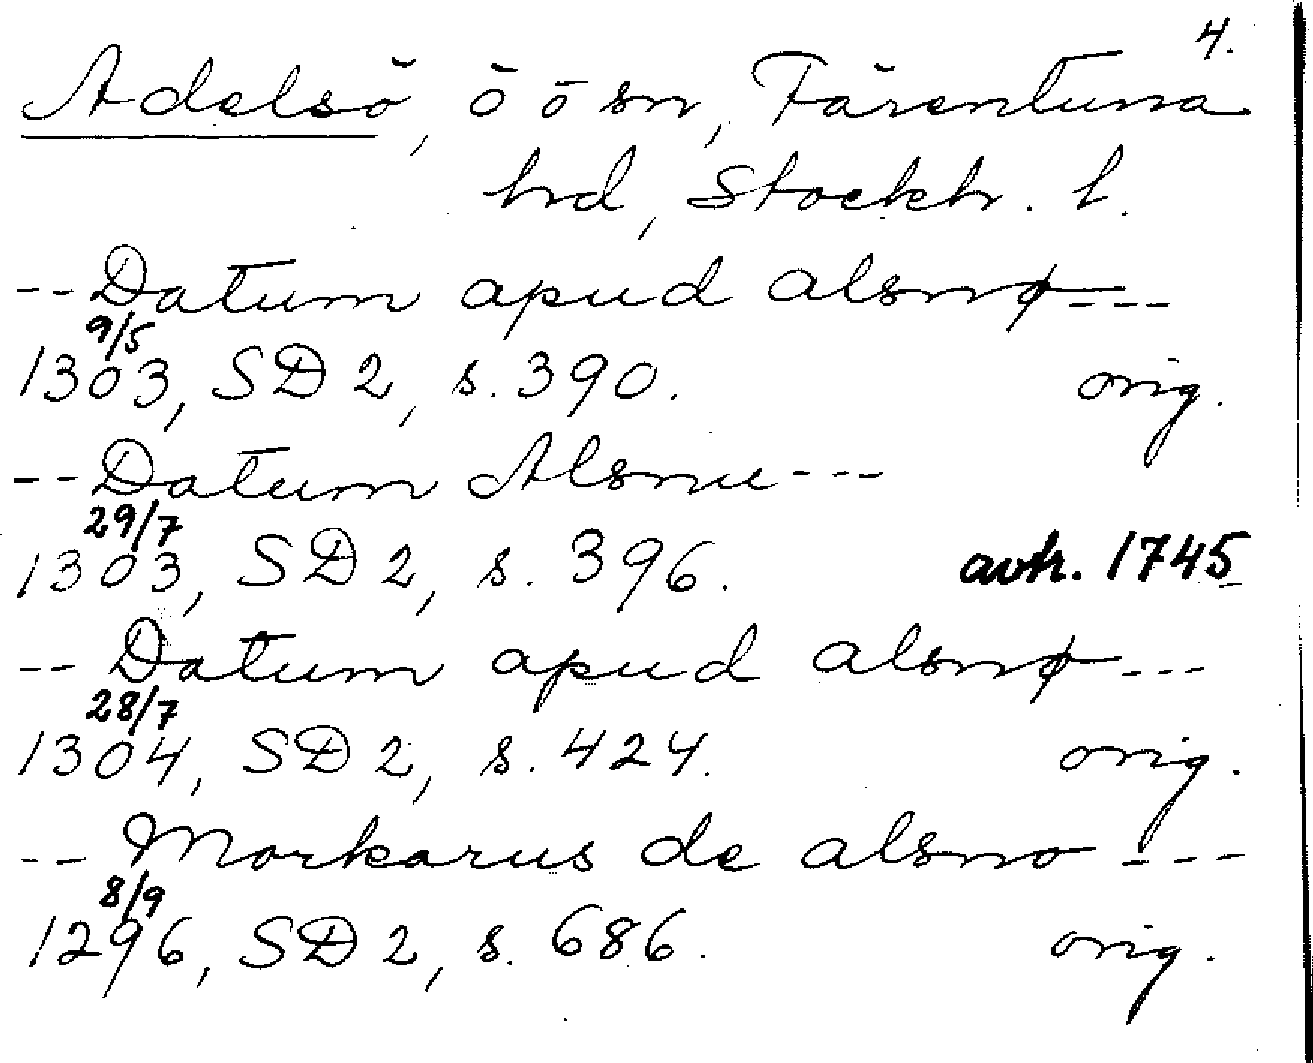 4.
Adelsö, ö o sn, Färentuna
hd, Stockh. l.
-- Datum apud alsnø ---
9/5
1303, SD 2, s. 390. orig.
-- Datum Alsnu ---
29/7
1303, SD 2, s. 396. avh. 1745
-- Datum apud alsnø ---
28/7
1304, SD 2, s. 424. orig.
-- Morkarus de alsno ---
8/9
1296, SD 2, s. 686. orig.